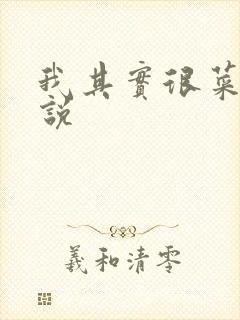 我其實很菜
說
羲和清零